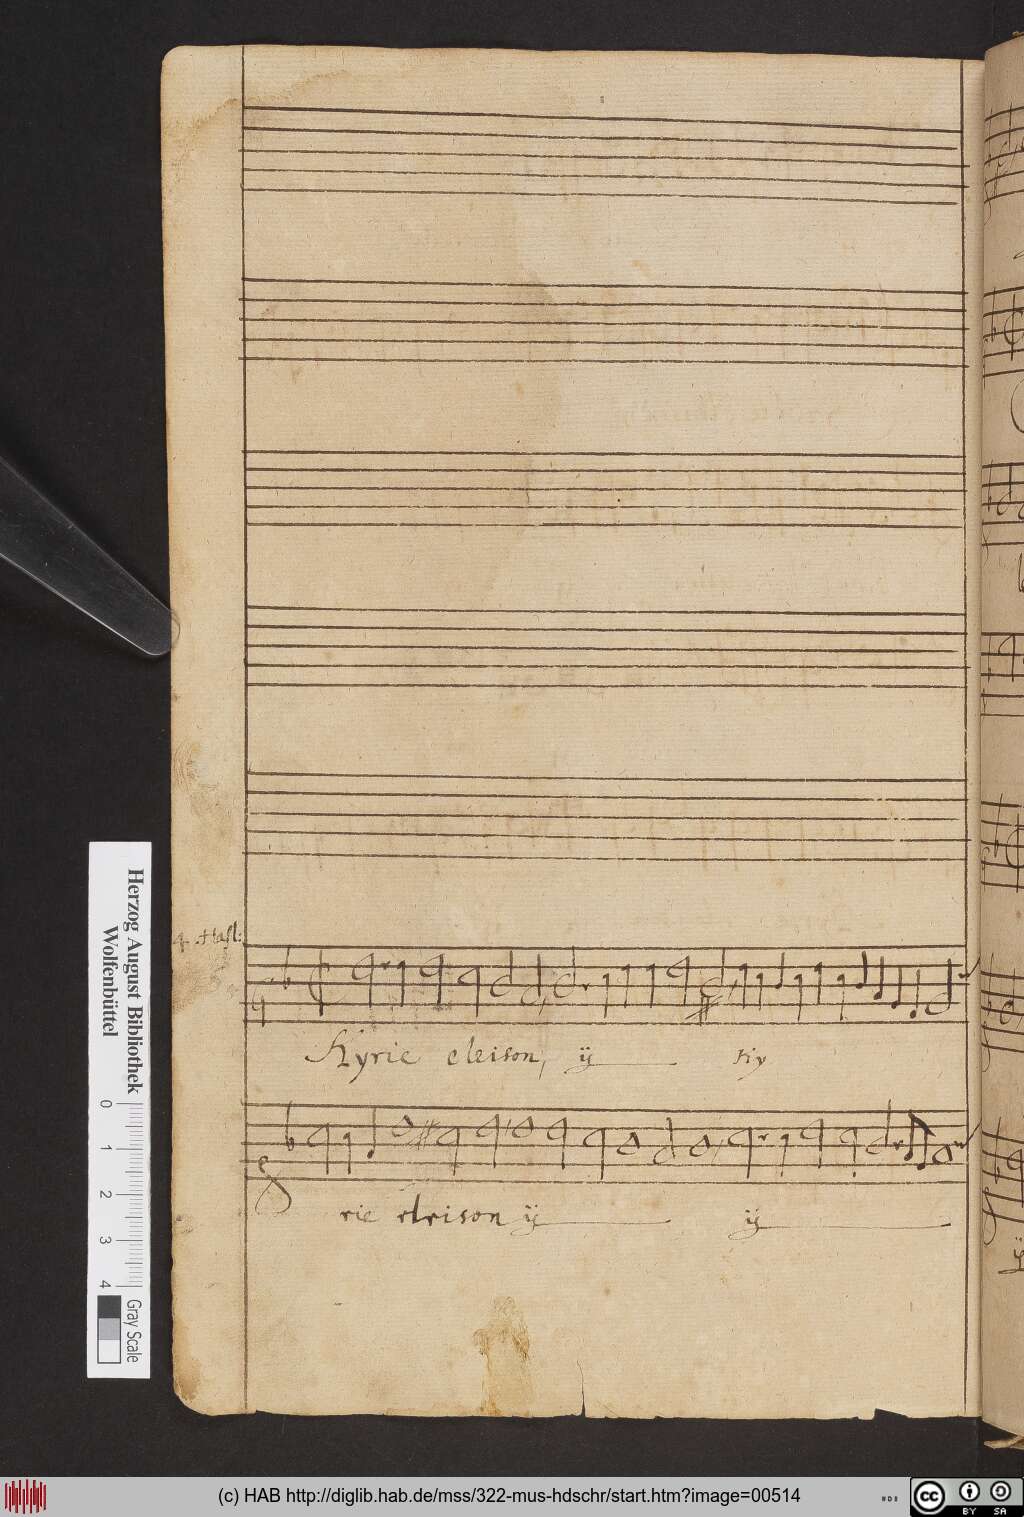 4 Hasl:
Kyrie eleison, ij Ky
rie eleison ij ij
Herzog August Bibliothek
Wolfenbüttel
0 1 2 3 4
Gray Scale
(c) HAB http://diglib.hab.de/mss/322-mus-hdschr/start.htm?image=00514
cc BY SA